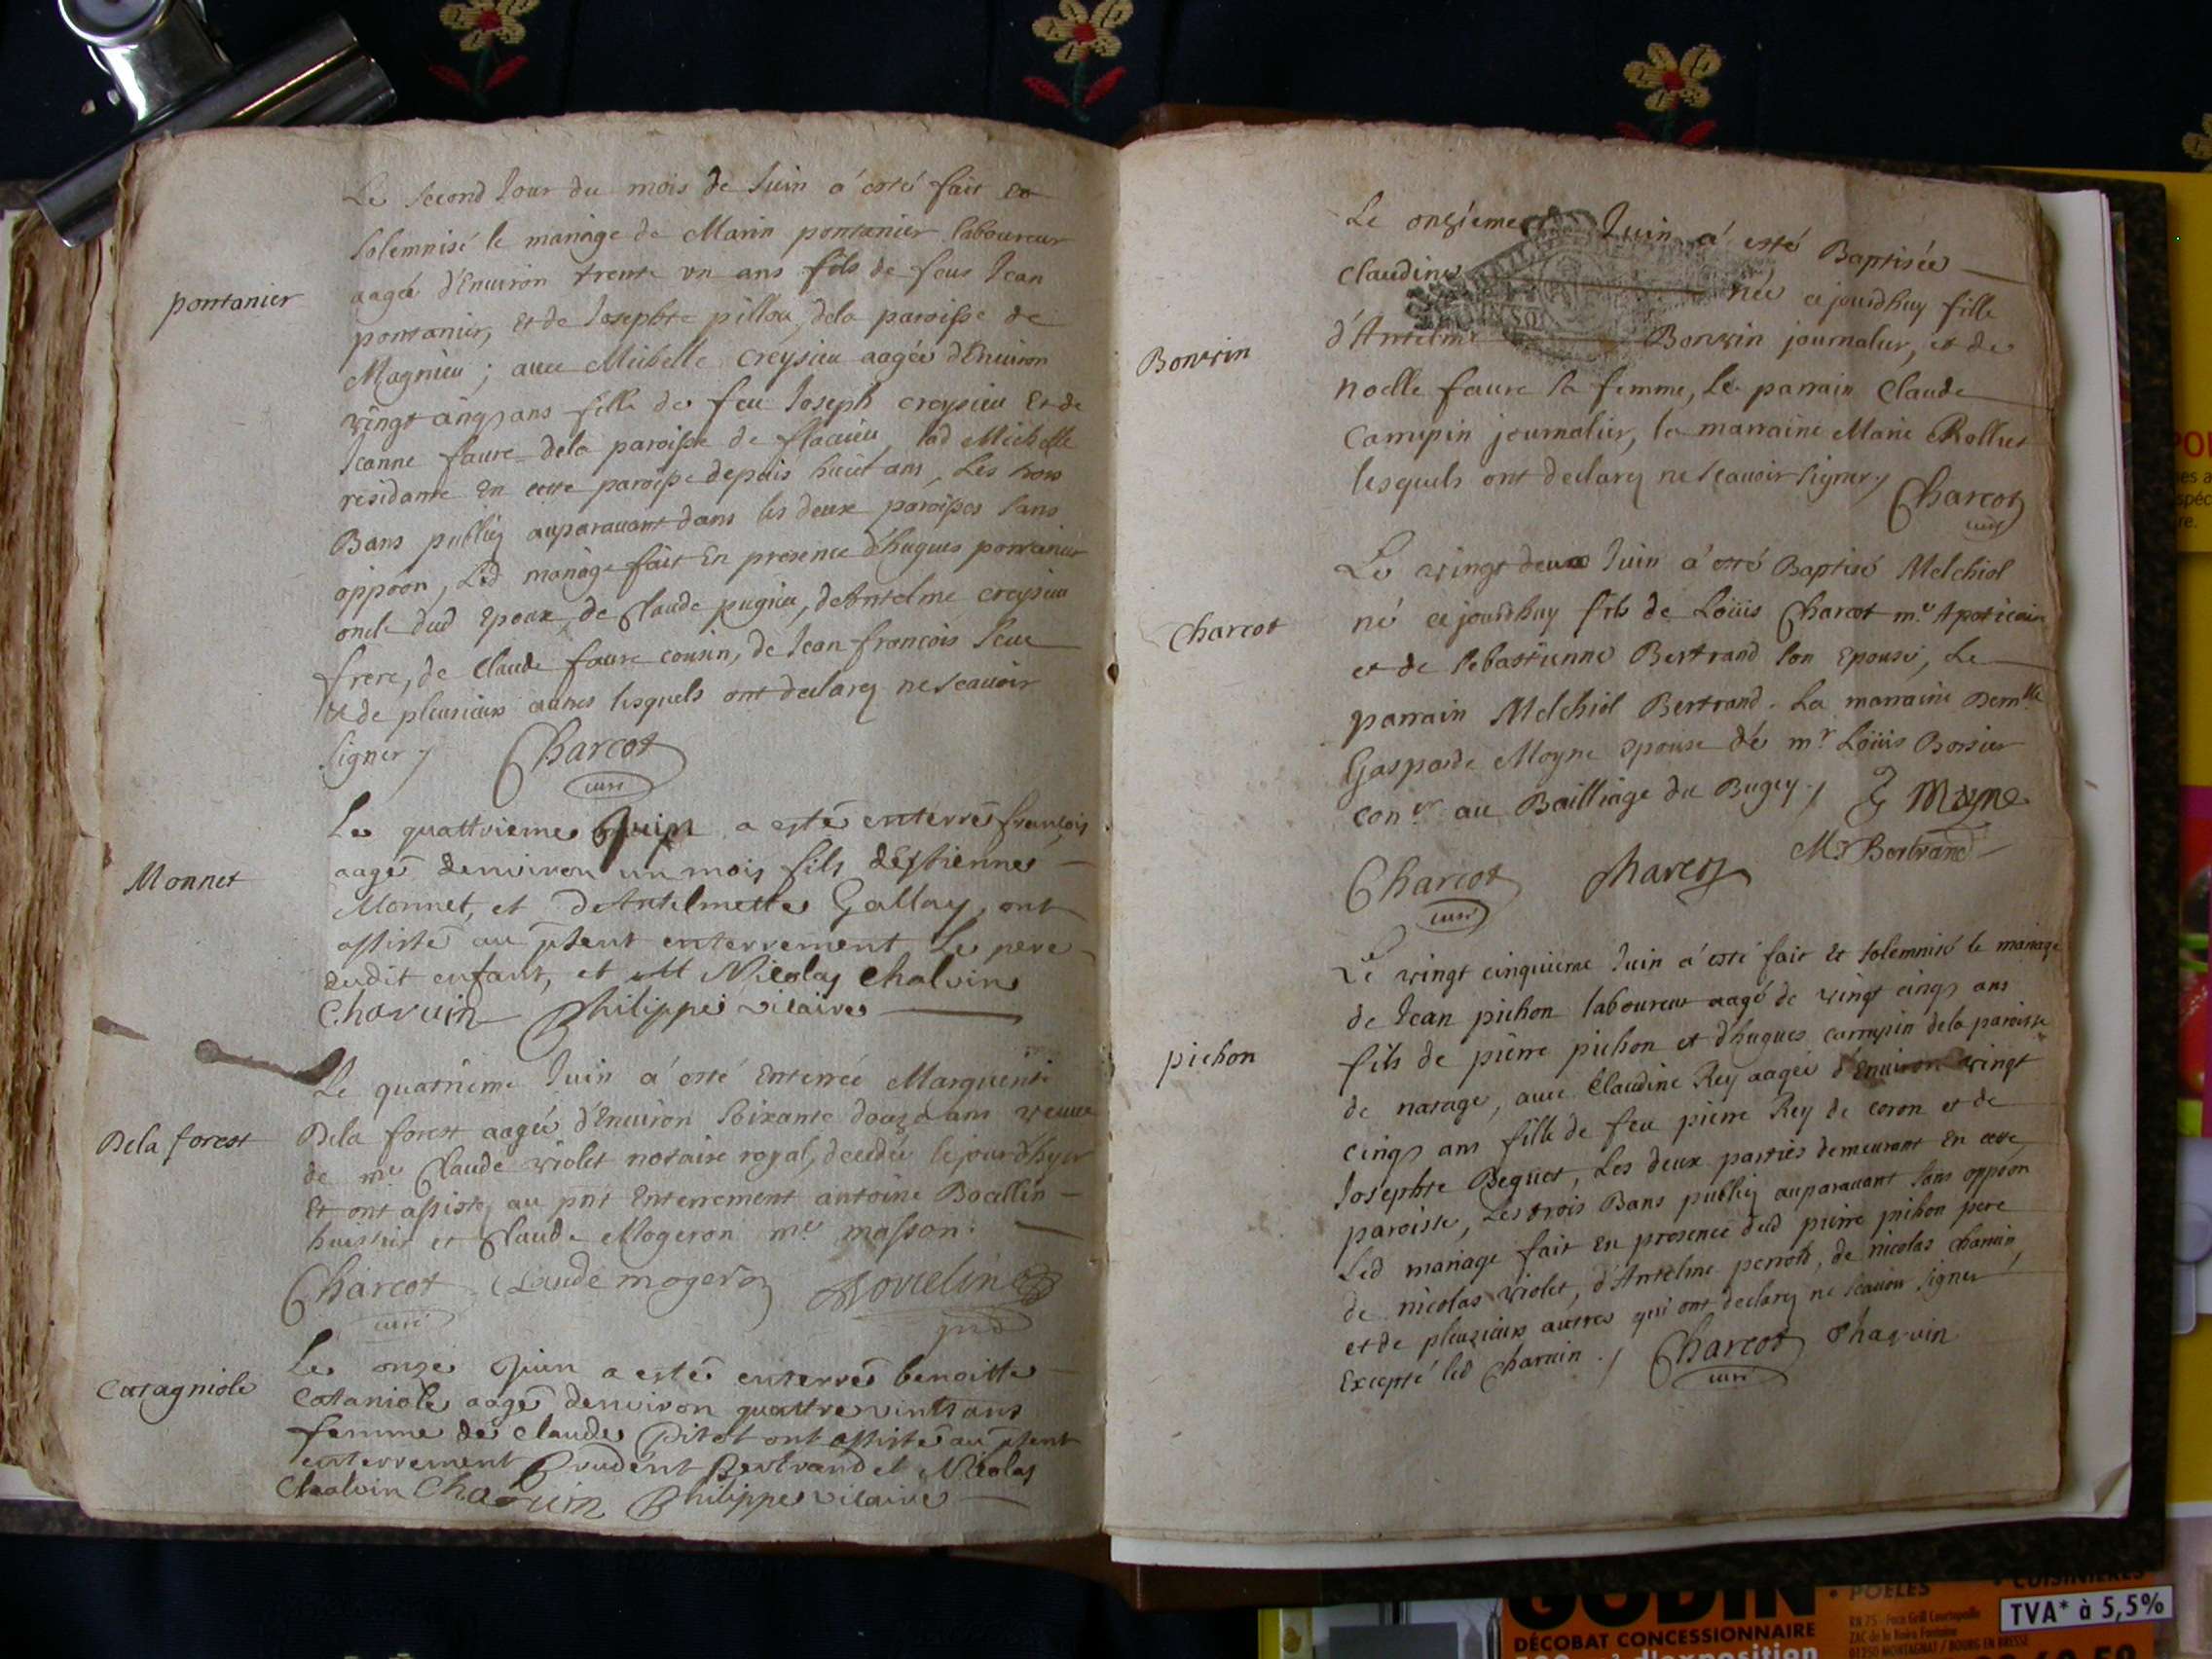 Le second Jour du mois de Juin a esté fait et
solemnisé le mariage de Marin pontanier laboureur
aagé d'Environ trente un ans fils de feus Jean
pontanier
pontanier, et de Josephte pillou, dela paroisse de
Magnieu ; avec Michelle creysieu aagée d'Environ
vingt cinq ans fille de feu Joseph creysieu Et de
Jeanne faure dela paroisse de flacieu, lad Michelle
residante En cette paroisse depuis huict ans, Les trois
Bans publiez auparavant dans les deux paroisses sans
oppoõn, Led mariage fait En presence d'hugues pontanier
oncle dud Epoux, de Claude pugieu, deAntelme creysieu
frere, de Claude faure cousin, de Jean françois
et de pleusieurs autres lesquels ont declarez ne scavoir
signer /
Charcot
curé
Le quattrieme Juin a esté enterré françois
Monnet
aagé denviron un mois fils destienne
Monnet, et deAntelmette Gallay, ont
assisté au pñent enterrement Le pere
dudit enfant, et Nicolas Chalvin
Charvin Philippe vicaire
Le quatrieme Juin a esté Enterrée Marguerite
Dela forest
Dela forest aagée d'Environ soixante douze ans veuve
de me Claude violet notaire royal, decedée le jourd'hyer
Et ont assistez au pnt Enterrement antoine Bocellin
huissier et Claude Mogeron me masson.
Charcot Claude mogeron
curé
Le onze Juin a esté enterré benoitte
Catagniole
Cataniole aagé denviron quattrevints ans
femme de claude Pitot ont assisté au pñent
enterrement Prudent Bertrand et Nicolas
Chalvin Charvin Philippe vicaire
Le onzieme Juin a esté Baptisée
Claudine née cejourdhuy fille
Bonvin
d'Antelme Bonvin journalier, et de
noelle faure sa femme, Le parrain Claude
Carrupin journalier, la marraine Marie Rollet
lesquels ont declarez ne scavoir signer /
Charcot
curé
Le vingt deux Juin a esté Baptisé Melchiol
Charcot
né cejourdhuy fils de Loüis Charcot me Apoticaire
et de sebastienne Bertrand son Epouse, Le
parrain Melchiol Bertrand. La marraine Demlle
Gasparde Moyne epouse de mr Loüis Bossier
coner au Bailliage du Bugey /
G Moyne
M Bertrand
Charcot Charcot
curé
Le vingt cinquieme Juin a esté fait Et solemnisé le mariage
de Jean pichon laboureur aagé de vingt cinq ans
pichon
fils de pierre pichon et d'hugues carrupin dela paroisse
de natage, avec Claudine Rey aagée d'Environ vingt
cinq ans fille de feu pierre Rey de coron et de
Josephte Beguet, Les deux parties demeurant En cette
paroisse, Les trois Bans publiez auparavant sans oppõon
Led mariage fait En presence dud pierre pichon pere
de nicolas violet, d'Antelme perrot, de nicolas charvin
et de pleusieurs autres qui ont declarez ne scavoir signer
Excepté led charvin /
Charcot Charvin
curé
GODIN
DÉCOBAT CONCESSIONNAIRE
• POÊLES
TVA* à 5,5%